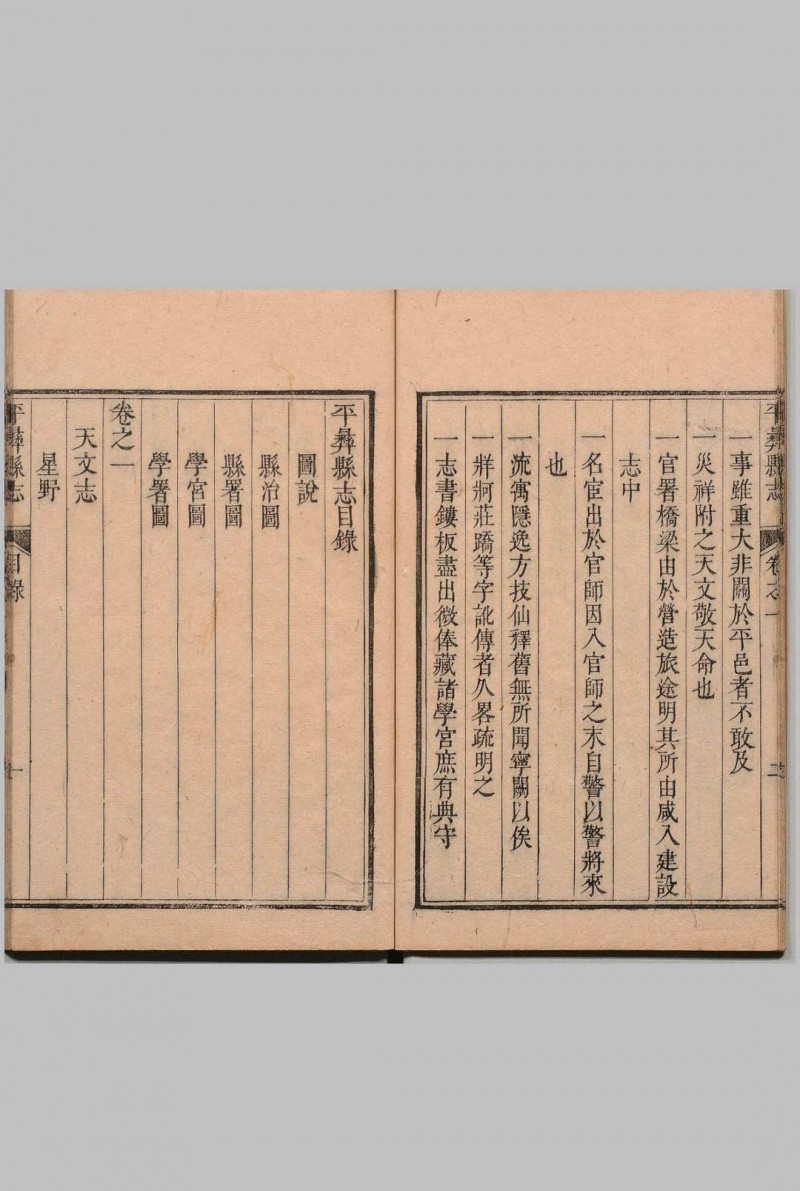 平彝縣志
卷之一
二
一事雖重大非關於平邑者不敢及
一災祥附之天文敬天命也
一官署橋梁由於營造旅途明其所由咸入建設
志中
一名宦出於官師因入官師之末自警以警將來
也
一流寓隱逸方技仙釋舊無所聞寧闕以俟
一牂牁莊蹻等字訛傳者久畧疏明之
一志書鏤板盡出微俸藏諸學宮庶有典守
平彝縣志目錄
圖說
縣治圖
縣署圖
學宮圖
學署圖
卷之一
天文志
星野
平彝縣志
目錄
一